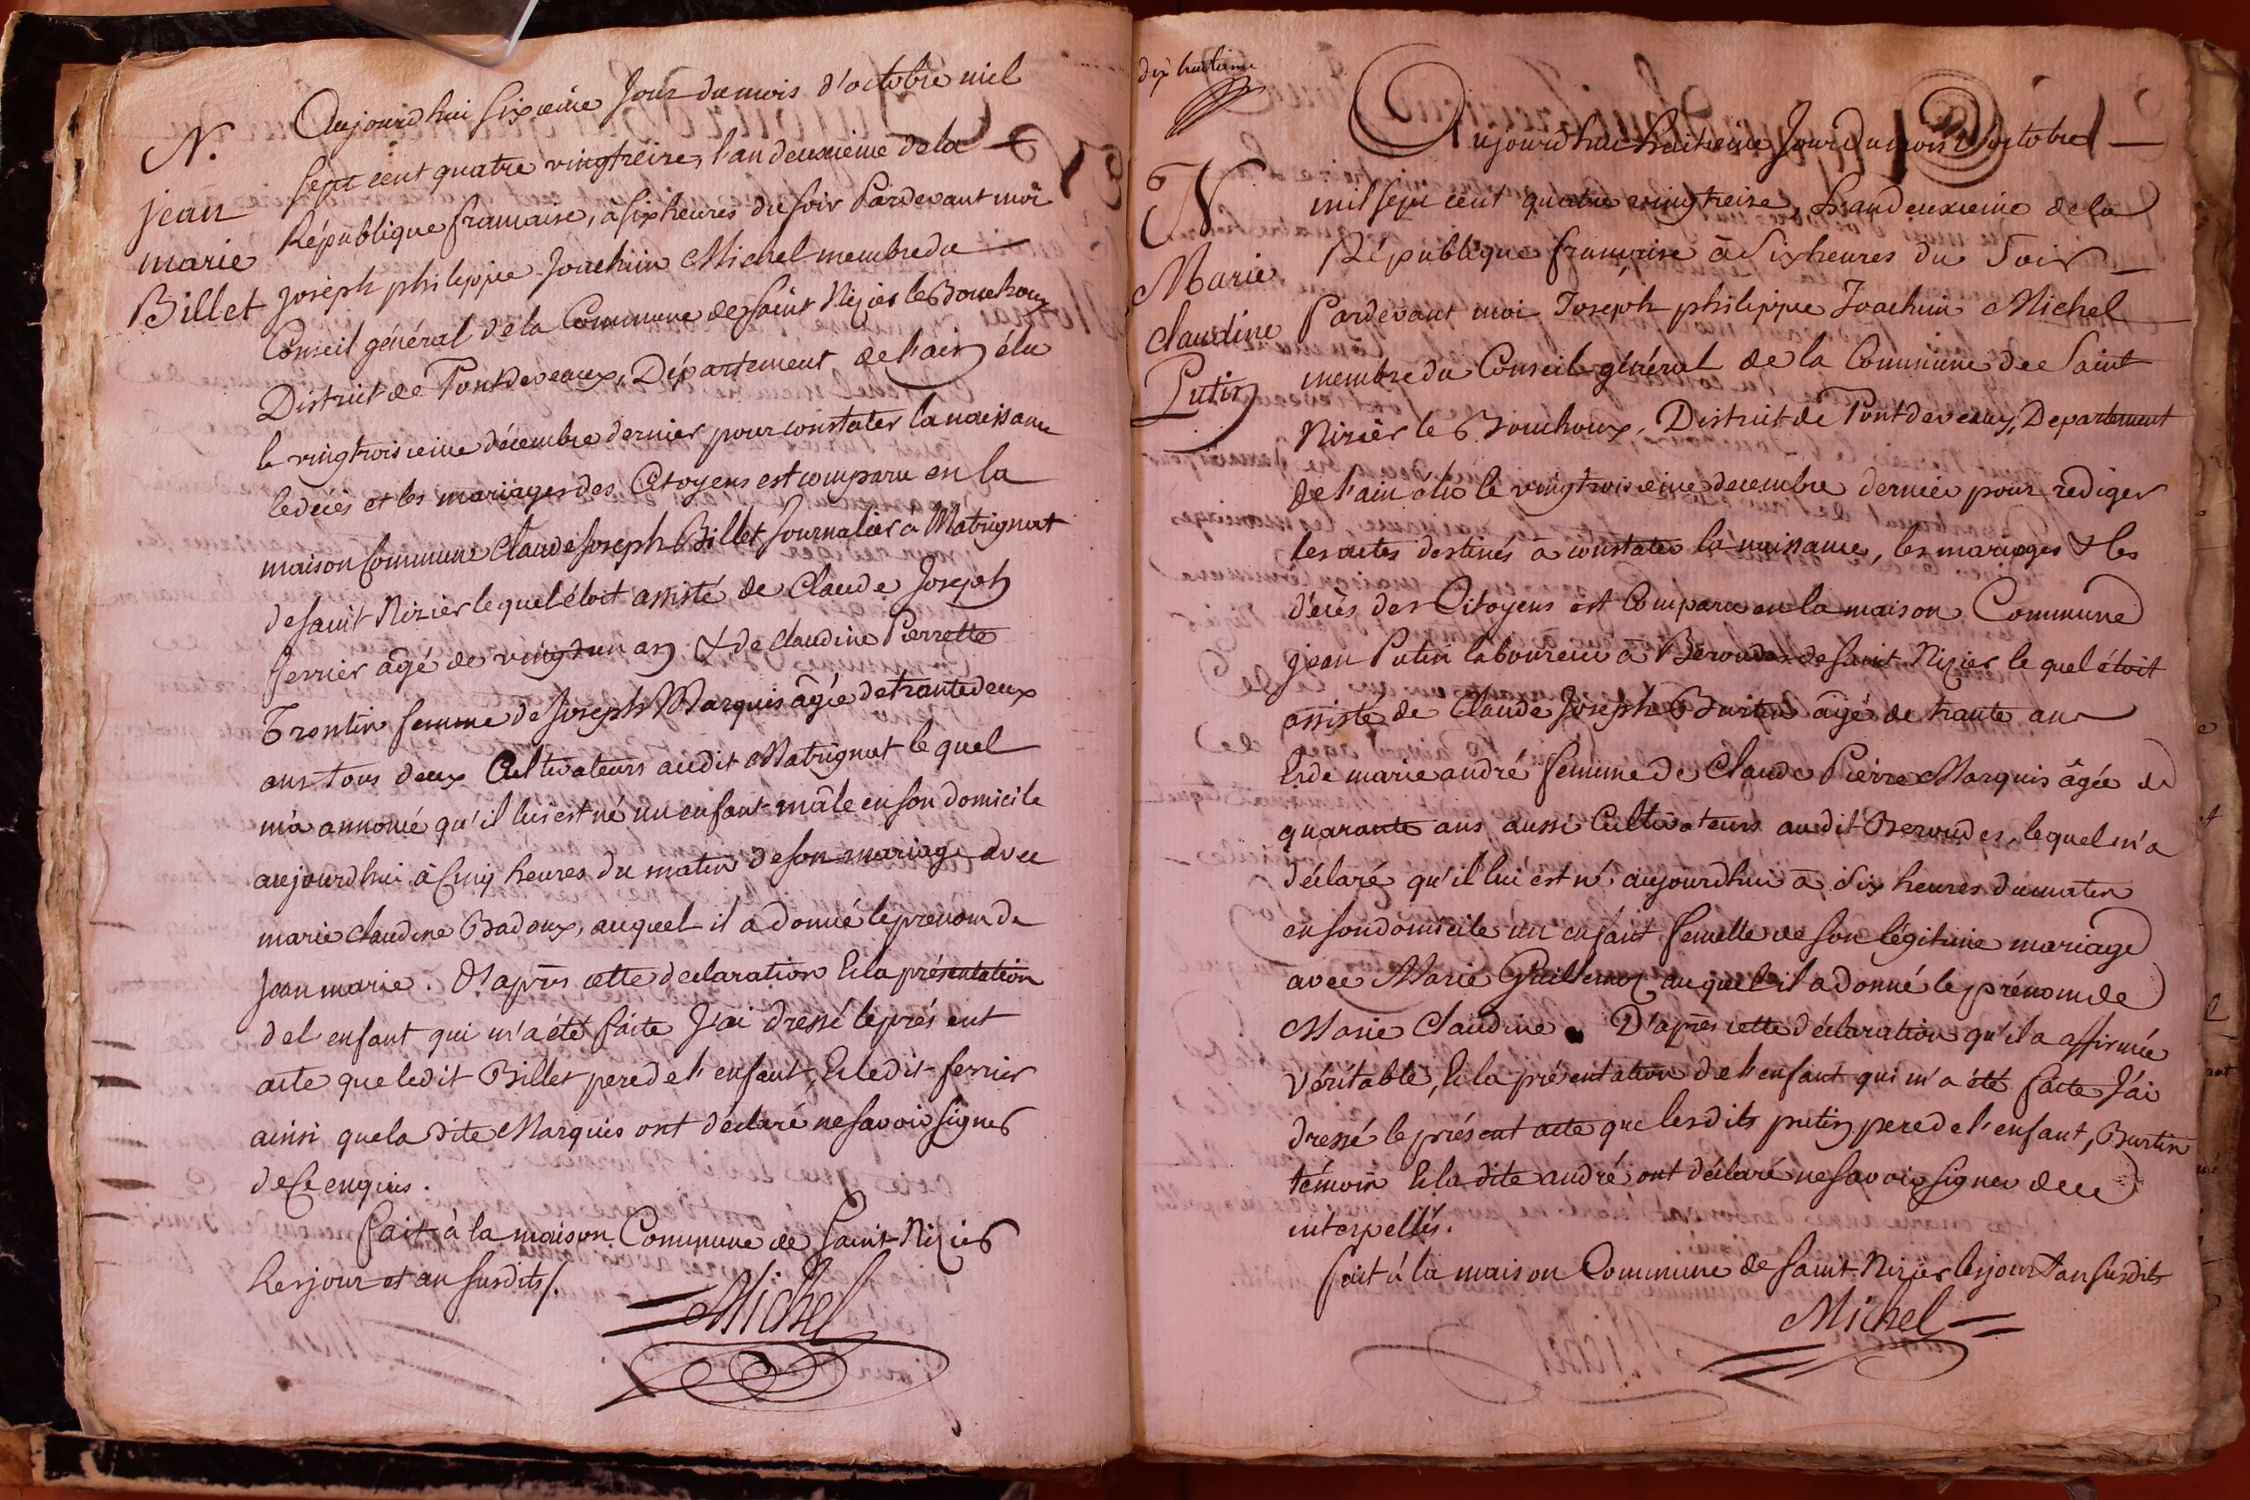 N.
jean
marie
Billet
Aujourd'hui sixieme Jour du mois d'octobre mil
sept cent quatre vingt treize, l'an deuxieme de la
République française, à six heures du soir Pardevant moi
Joseph philippe Joachim Michel membre du
Conseil général de la Commune de Saint Nizier le Bouchoux
District de Pontdevaux, Département de l'ain élu
le vingt troisieme décembre dernier pour constater la naissance
le décès et les mariages des Citoyens est comparu en la
maison Commune Claude Joseph Billet Journalier à Matrignat
de saint Nizier lequel étoit assisté de Claude Joseph
ferrier âgé de vingt un ans & de Claudine Pierrette
Trontin femme de Joseph Marquis âgée de trante deux
ans tous deux Cultivateurs audit Matrignat lequel
m'a annoncé qu'il lui est né un enfant mâle en son domicile
aujourd'hui à Cinq heures du matin de son mariage avec
marie claudine Badoux, auquel il a donné le prenom de
Jean marie. D'après cette declaration Et la présentation
de l'enfant qui m'a été faite J'ai dressé le présent
acte que ledit Billet pere de l'enfant, Et ledit ferrier
ainsi que la dite Marquis ont déclaré ne savoir signer
de Ce enquis.
fait à la maison Commune de Saint Nizier
Les jour et an susdits/.
Michel
dix huitieme
N.
Marie
claudine
Putin
Aujourd'hui huitieme Jour du mois d'octobre
mil sept cent quatre vingt treize, L'an deuxieme de la
République française à Six heures du Soir
Pardevant moi Joseph philippe Joachim Michel
membre du Conseil général de la Commune de Saint
Nizier le Bouchoux, District de Pontdevaux, Departement
de l'ain élu le vingt troisieme decembre dernier pour rediger
les actes destinés à constater la naissance, les mariages & les
décès des Citoyens est Comparu en la maison Commune
jean Putin laboureur à Beroudes de saint Nizier lequel étoit
assisté de Claude Joseph Burtin âgé de trante ans
Et de marie andré femme de Claude Pierre Marquis âgée de
quarante ans aussi Cultivateurs audit Beroudes, lequel m'a
déclaré qu'il lui est né aujourd'hui à Six heures du matin
en son domicile un enfant femelle de son légitime mariage
avec Marie Guillemot auquel il a donné le prénom de
Marie Claudine. D'après cette déclaration qu'il a affirmée
Véritable, Et la présentation de l'enfant qui m'a été faite J'ai
dressé le présent acte que lesdits putin pere de l'enfant, Burtin
témoin Et la dite andré ont déclaré ne savoir signer de ce
interpellés.
fait à la maison Commune de saint Nizier les jour & an susdits
Michel